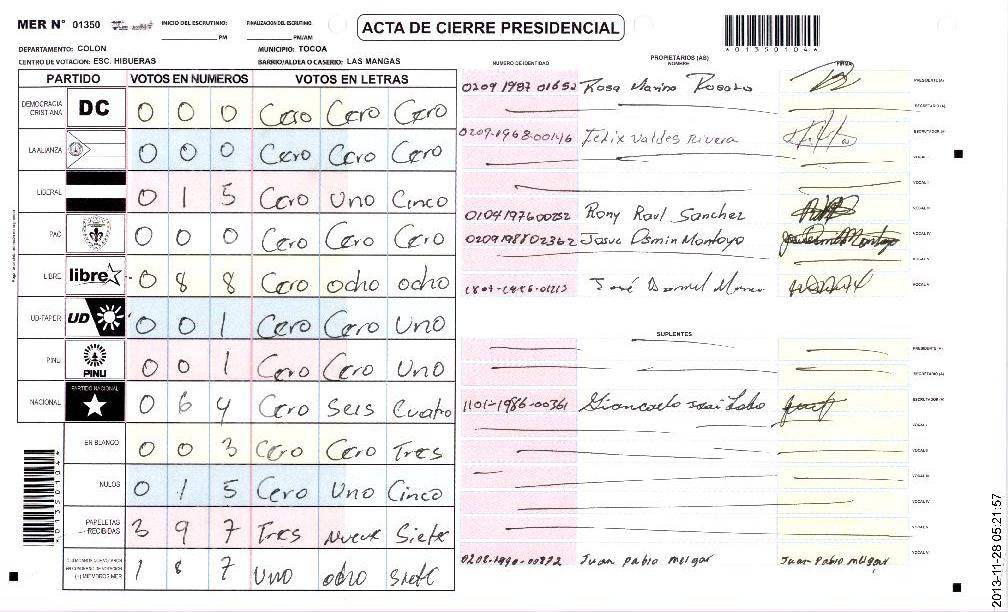 MER N° 01350
INICIO DEL ESCRUTINIO:
PM
FINALIZACION DEL ESCRUTINIO
PM/AM
ACTA DE CIERRE PRESIDENCIAL
A01350104A
DEPARTAMENTO: COLON
MUNICIPIO: TOCOA
CENTRO DE VOTACION: ESC. HIBUERAS
BARRIO/ALDEA O CASERIO: LAS MANGAS
NUMERO DE IDENTIDAD
PROPIETARIOS (AS)
NOMBRE
FIRMA
PARTIDO VOTOS EN NUMEROS VOTOS EN LETRAS
DEMOCRACIA CRISTIANA DC 0 0 0 Cero Cero Cero
LA ALIANZA 0 0 0 Cero Cero Cero
LIBERAL 0 1 5 Cero Uno Cinco
PAC 0 0 0 Cero Cero Cero
LIBRE libre 0 8 8 Cero ocho ocho
UD-FAPER UD 0 0 1 Cero Cero Uno
PINU PINU 0 0 1 Cero Cero Uno
NACIONAL PARTIDO NACIONAL 0 6 4 Cero Seis Cuatro
EN BLANCO 0 0 3 Cero Cero Tres
NULOS 0 1 5 Cero Uno Cinco
PAPELETAS RECIBIDAS 3 9 7 Tres Nueve Siete
(+) MIEMBROS MER 1 8 7 Uno ocho siete
0209 1987 01652 Rosa Marina PRESIDENTE (A)
SECRETARIO (A)
0209-1968-00146 Felix Valdes Rivera ESCRUTADOR (A)
VOCAL I
VOCAL II
0104197600252 Rony Raul Sanchez VOCAL III
0209198802362 Josue Osmin Montoya VOCAL IV
VOCAL V
José VOCAL VI
SUPLENTES
PRESIDENTE (A)
SECRETARIO (A)
1101-1986-00361 Giancarlo ESCRUTADOR (A)
VOCAL I
VOCAL II
VOCAL III
VOCAL IV
VOCAL V
0208-1990-00872 Juan pablo melgar Juan Pablo melgar VOCAL VI
A01350104A
2013-11-28 05:21:57